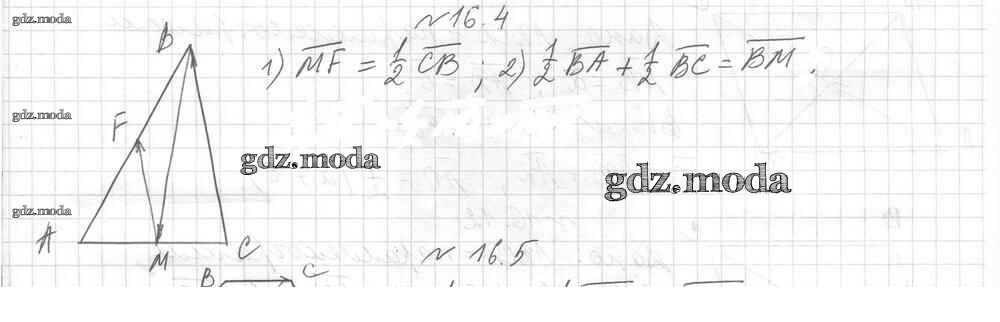 gdz.moda
№16.4
B
1) MF = 1/2 CB ; 2) 1/2 BA + 1/2 BC = BM .
gdz.moda
F
gdz.moda
gdz.moda
gdz.moda
A
M
C
№ 16.5
B
C